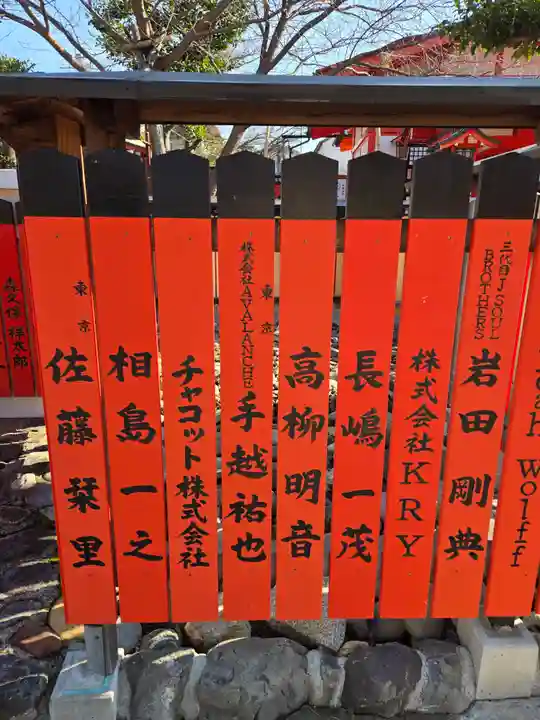 森久保 祥太郎
東京
佐藤 栞里
相島 一之
チャコット株式会社
株式会社AVALANCHE
手越祐也
東京
高柳明音
長嶋一茂
株式会社KRY
三代目 J SOUL
BROTHERS
岩田剛典
Wolff